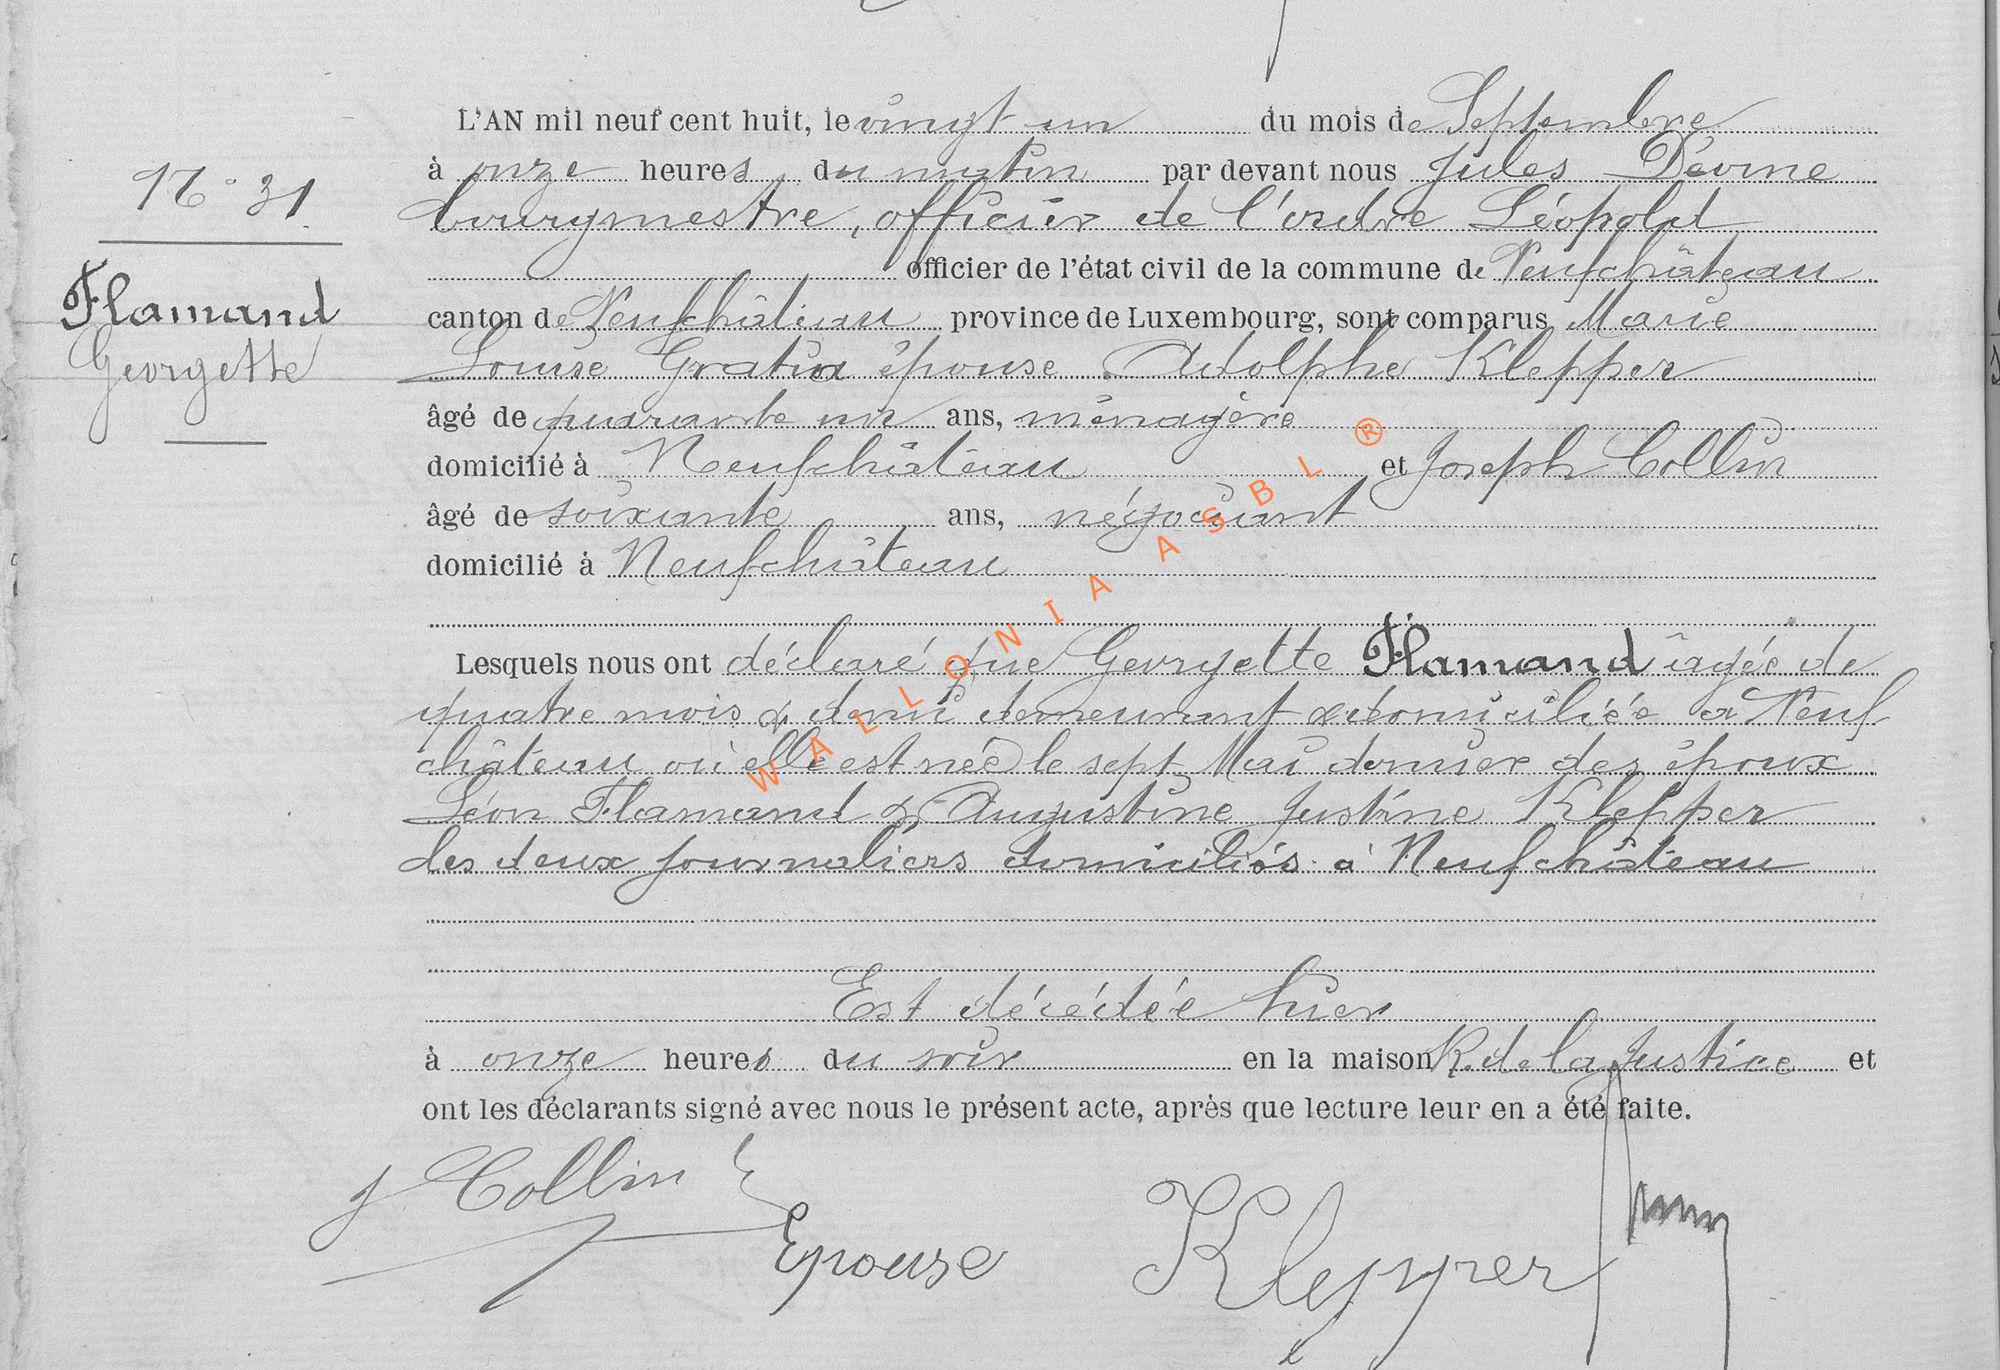 L'AN mil neuf cent huit, le vingt un du mois de Septembre
à onze heures du matin par devant nous Jules
bourgmestre, officier de l'ordre Léopold
officier de l'état civil de la commune de Neufchâteau
canton de Neufchâteau province de Luxembourg, sont comparus Marie
Louise épouse Adolphe Klepper
âgé de quarante un ans, ménagère
domicilié à Neufchâteau et Joseph Collin
âgé de soixante ans, négociant
domicilié à Neufchâteau
N° 31
Flamand
Georgette
Lesquels nous ont déclaré que Georgette Flamand âgée de
quatre mois & demi demeurant & domiciliée à Neuf
château où elle est née le sept Mai dernier des époux
Léon Flamand & Augustine Justine Klepper
les deux journaliers domiciliés à Neufchâteau
Est décédée hier
à onze heures du soir en la maison R. de la Justice et
ont les déclarants signé avec nous le présent acte, après que lecture leur en a été faite.
J Collin
Epouse Klepper
WALLONIA ASBL ®